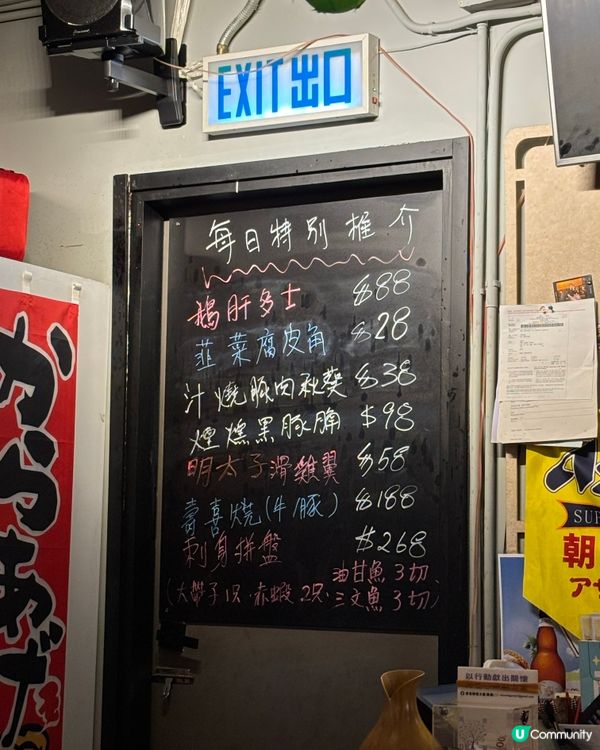 EXIT 出口
每日特別推介
鵝肝多士 $88
韮菜腐皮角 $28
汁燒豚肉秋葵 $38
煙燻黑豚腩 $98
明太子滑雞翼 $58
壽喜燒(牛/豚) $188
刺身拼盤 $268
(大帶子1只.赤蝦.2只.油甘魚3切.
三文魚3切)
からあげ
SUP
朝
アサ
以行動献出關懷
U Community